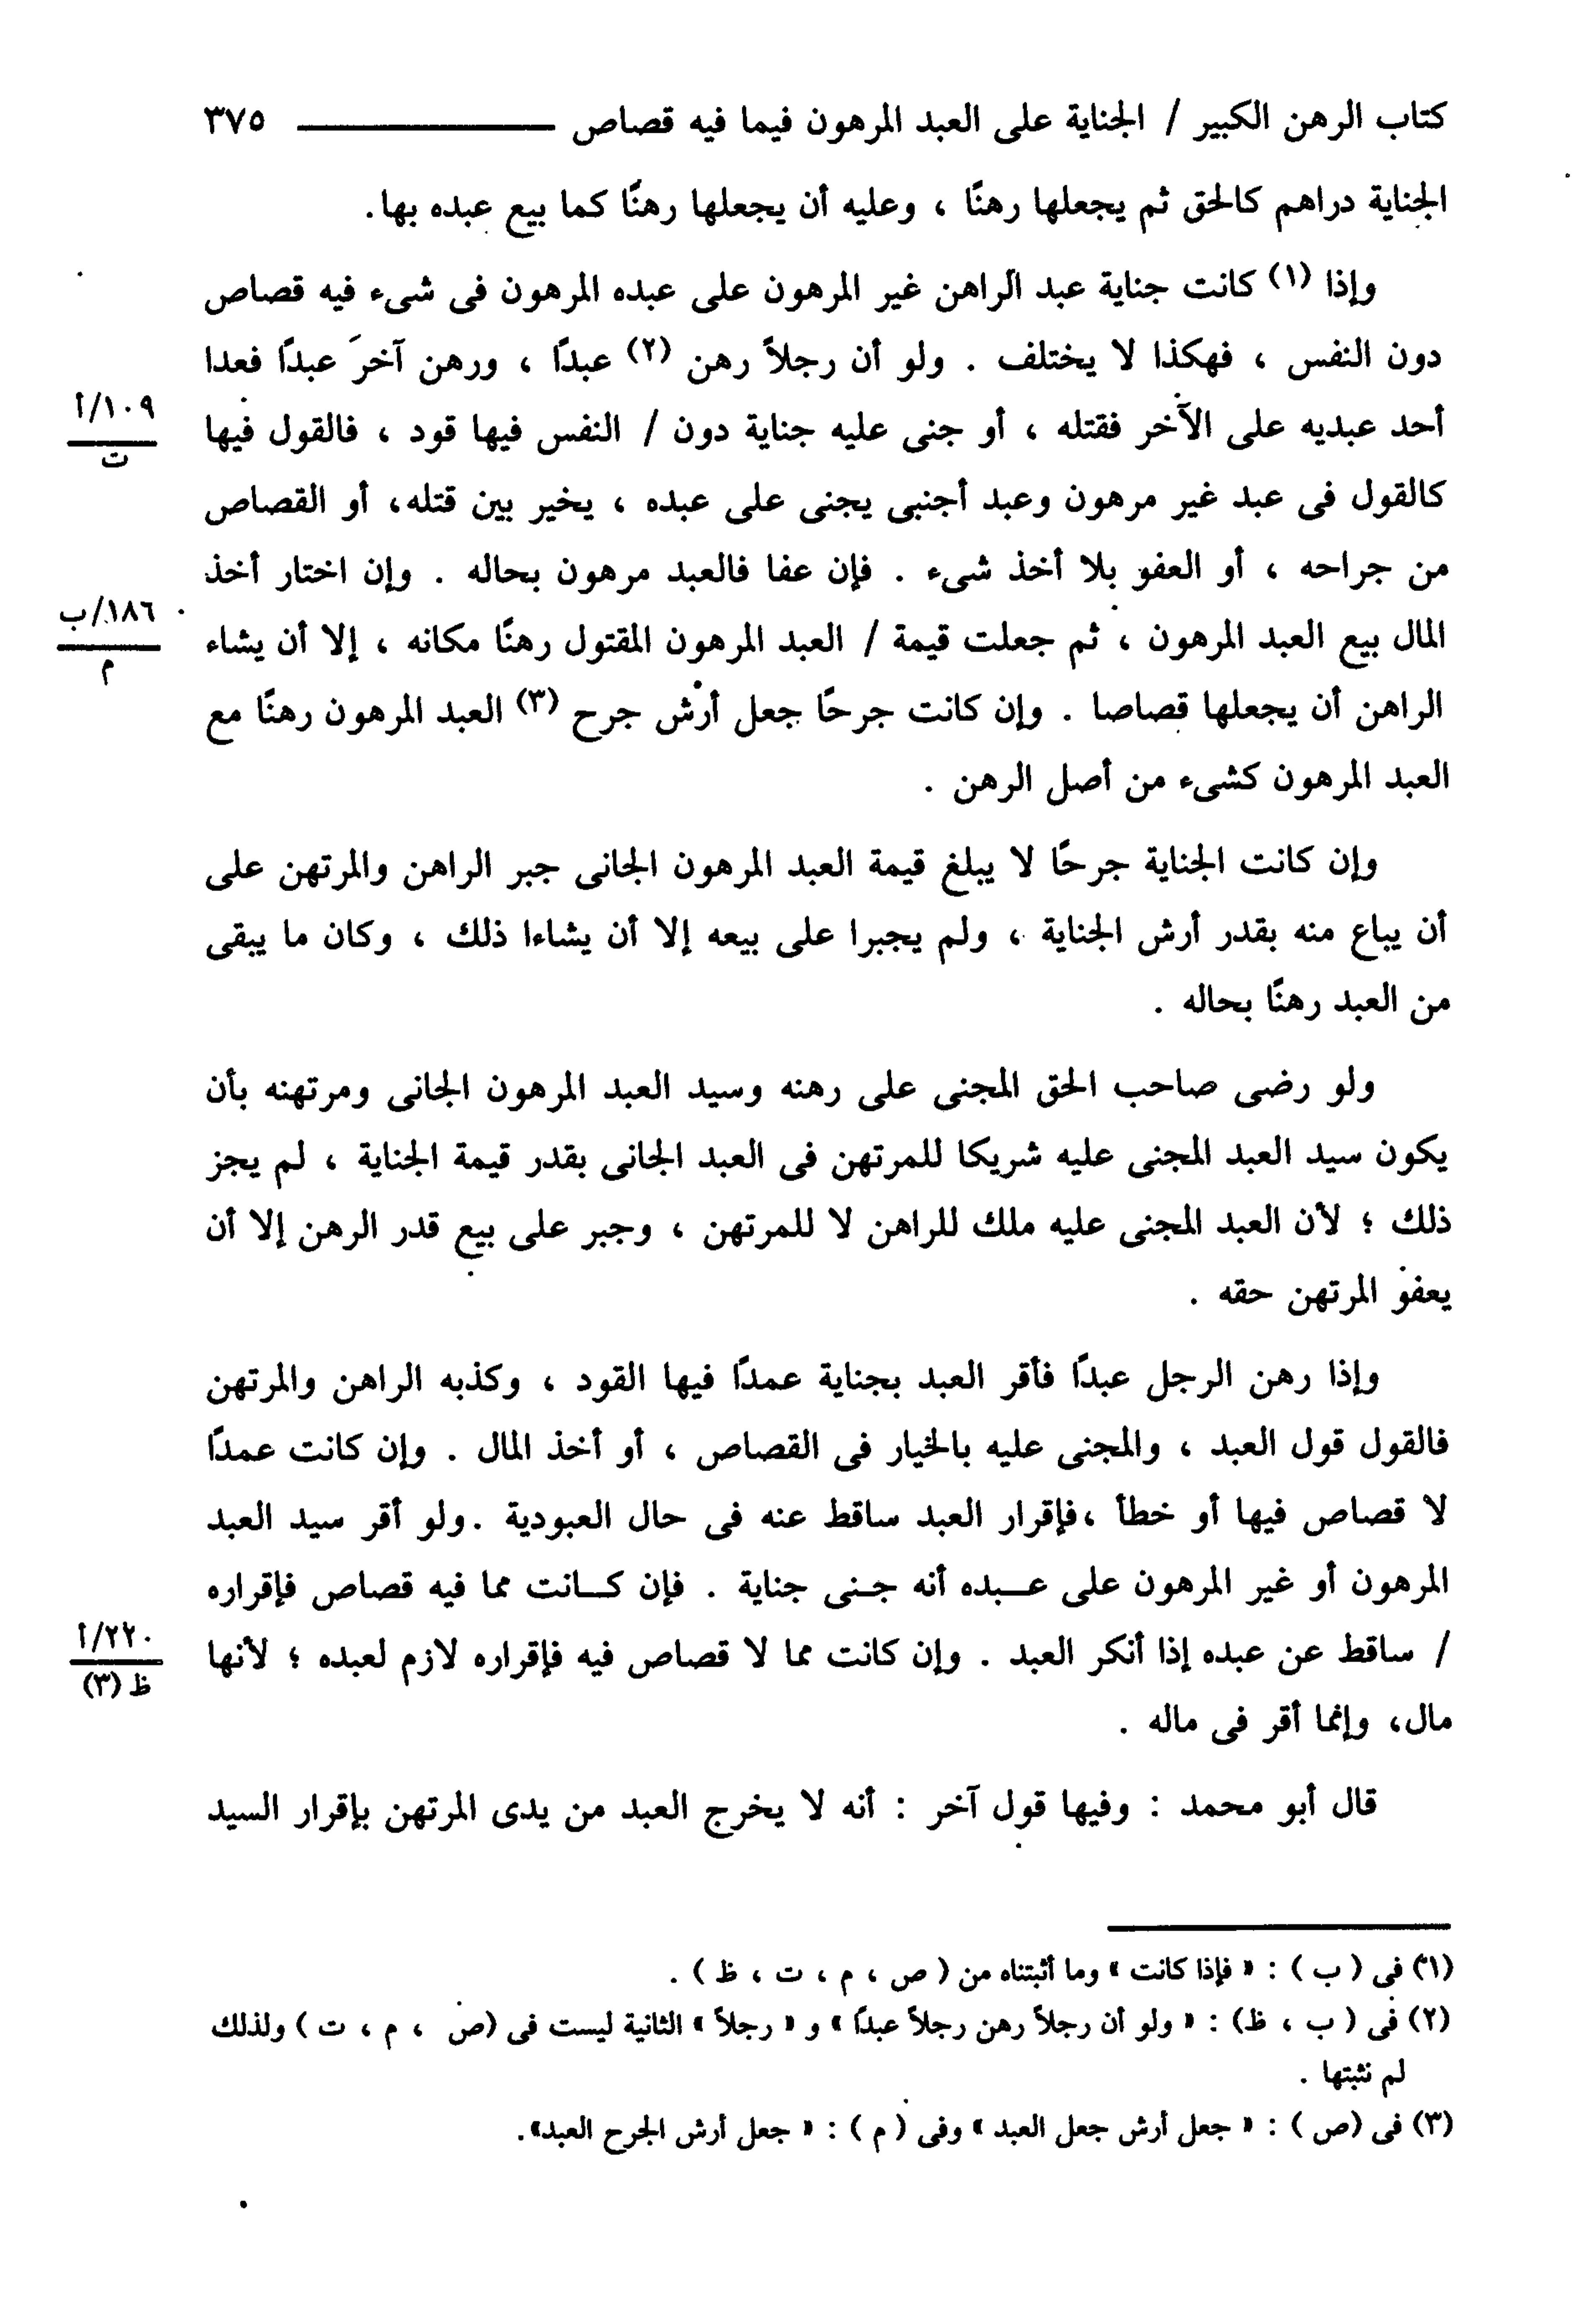 كتاب الرهن الكبير / الجناية على العبد المرهون فيما فيه قصاص ـــــــــــ ٣٧٥
الجناية دراهم كالحق ثم يجعلها رهنًا ، وعليه أن يجعلها رهنًا كما بيع عبده بها.
وإذا (١) كانت جناية عبد الراهن غير المرهون على عبده المرهون فى شىء فيه قصاص
دون النفس ، فهكذا لا يختلف . ولو أن رجلاً رهن (٢) عبدًا ، ورهن آخرَ عبدًا فعدا
أحد عبديه على الآخر فقتله ، أو جنى عليه جناية دون / النفس فيها قود ، فالقول فيها
١٠٩/أ
ت
كالقول فى عبد غير مرهون وعبد أجنبى يجنى على عبده ، يخير بين قتله، أو القصاص
من جراحه ، أو العفو بلا أخذ شىء . فإن عفا فالعبد مرهون بحاله . وإن اختار أخذ
المال بيع العبد المرهون ، ثم جعلت قيمة / العبد المرهون المقتول رهنًا مكانه ، إلا أن يشاء
١٨٦/ب
م
الراهن أن يجعلها قصاصا . وإن كانت جرحًا جعل أرش جرح (٣) العبد المرهون رهنًا مع
العبد المرهون كشىء من أصل الرهن .
وإن كانت الجناية جرحًا لا يبلغ قيمة العبد المرهون الجانى جبر الراهن والمرتهن على
أن يباع منه بقدر أرش الجناية ، ولم يجبرا على بيعه إلا أن يشاءا ذلك ، وكان ما يبقى
من العبد رهنًا بحاله .
ولو رضى صاحب الحق المجنى على رهنه وسيد العبد المرهون الجانى ومرتهنه بأن
يكون سيد العبد المجنى عليه شريكا للمرتهن فى العبد الجانى بقدر قيمة الجناية ، لم يجز
ذلك ؛ لأن العبد المجنى عليه ملك للراهن لا للمرتهن ، وجبر على بيع قدر الرهن إلا أن
يعفو المرتهن حقه .
وإذا رهن الرجل عبدًا فأقر العبد بجناية عمدًا فيها القود ، وكذبه الراهن والمرتهن
فالقول قول العبد ، والمجنى عليه بالخيار فى القصاص ، أو أخذ المال . وإن كانت عمدًا
لا قصاص فيها أو خطأ ،فإقرار العبد ساقط عنه فى حال العبودية .ولو أقر سيد العبد
المرهون أو غير المرهون على عـــبده أنه جـنى جناية . فإن كـــانت مما فيه قصاص فإقراره
/ ساقط عن عبده إذا أنكر العبد . وإن كانت مما لا قصاص فيه فإقراره لازم لعبده ؛ لأنها
٢٢٠/أ
ظ (٣)
مال، وإنما أقر فى ماله .
قال أبو محمد : وفيها قول آخر : أنه لا يخرج العبد من يدى المرتهن بإقرار السيد
(١) فى ( ب ) : « فإذا كانت » وما أثبتناه من ( ص ، م ، ت ، ظ ) .
(٢) فى ( ب ، ظ) : « ولو أن رجلاً رهن رجلاً عبدًا » و « رجلاً » الثانية ليست فى (ص ، م ، ت ) ولذلك
لم نثبتها .
(٣) فى (ص ) : « جعل أرش جعل العبد » وفى ( م ) : « جعل أرش الجرح العبد».